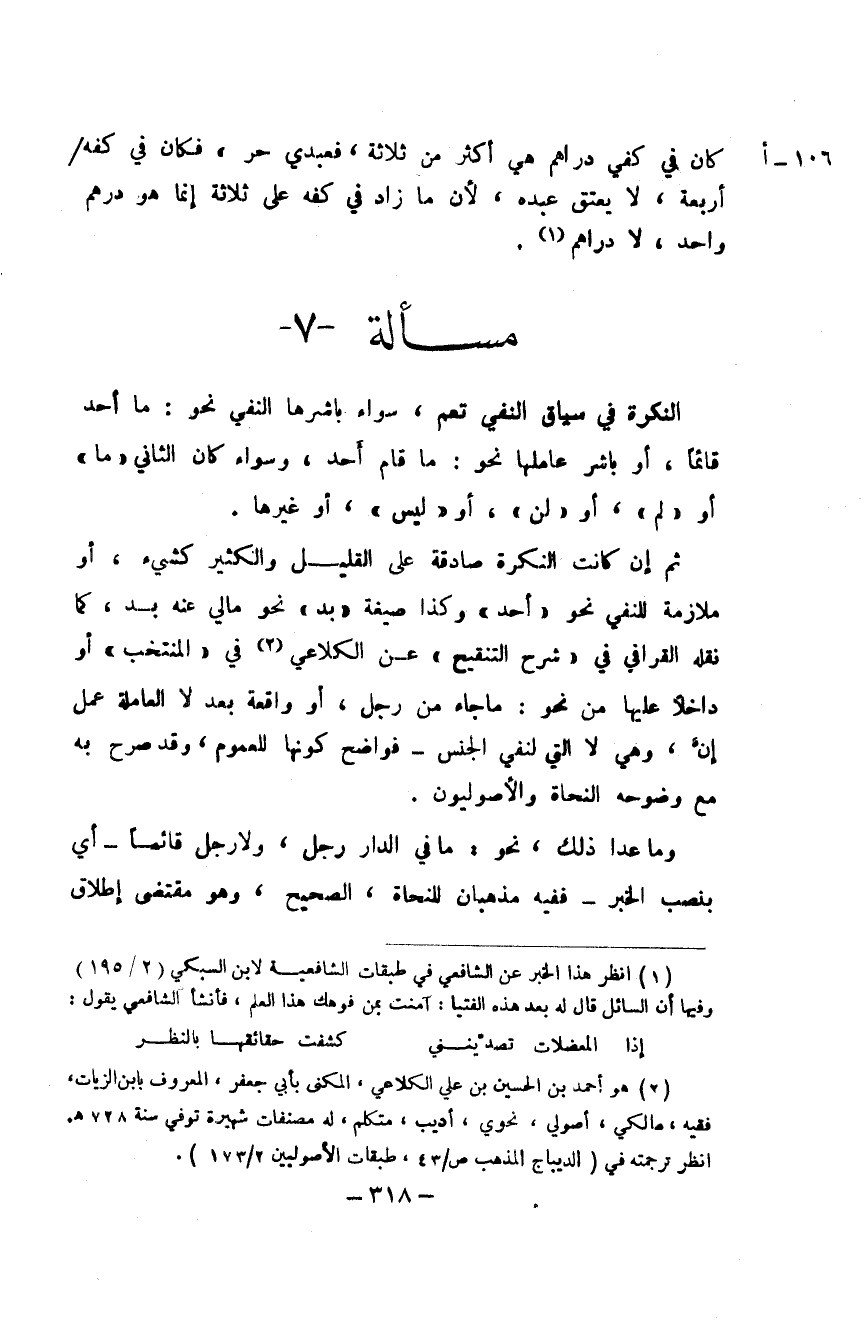 ١٠٦ - أ
كان في كفي دراهم هي أكثر من ثلاثة ، فعبدي حر ، فكان في كفه/
أربعة ، لا يعتق عبده ، لأن ما زاد في كفه على ثلاثة إنما هو درهم
واحد ، لا دراهم (١) .
مسألة -٧-
النكرة في سياق النفي تعم ، سواء باشرها النفي نحو : ما أحد
قائماً ، أو باشر عاملها نحو : ما قام أحد ، وسواء كان الثاني « ما »
أو « لم » ، أو « لن » ، أو « ليس » ، أو غيرها .
ثم إن كانت النكرة صادقة على القليل والكثير كشيء ، أو
ملازمة للنفي نحو « أحد » وكذا صيغة « بد » نحو مالي عنه بد ، كما
نقله القرافي في « شرح التنقيح » عن الكلاعي (٢) في « المنتخب » أو
داخلاً عليها من نحو : ماجاء من رجل ، أو واقعة بعد لا العاملة عمل
إنّ ، وهي لا التي لنفي الجنس - فواضح كونها للعموم ، وقد صرح به
مع وضوحه النحاة والأصوليون .
وما عدا ذلك ، نحو : ما في الدار رجل ، ولا رجل قائماً - أي
بنصب الخبر - ففيه مذهبان للنحاة ، الصحيح ، وهو مقتضى إطلاق
(١) انظر هذا الخبر عن الشافعي في طبقات الشافعية لابن السبكي ( ٢ / ١٩٥ )
وفيها أن السائل قال له بعد هذه الفتيا : آمنت بمن فوهك هذا العلم ، فأنشأ الشافعي يقول :
إذا المعضلات تصدّينني كشفت حقائقها بالنظر
(٢) هو أحمد بن الحسين بن علي الكلاعي ، المكنى بأبي جعفر ، المعروف بابن الزيات،
فقيه ، مالكي ، أصولي ، نحوي ، أديب ، متكلم ، له مصنفات شهيرة توفي سنة ٧٢٨ هـ.
انظر ترجمته في ( الديباج المذهب ص/٤٣ ، طبقات الأصوليين ١٧٣/٢ ) .
- ٣١٨ -